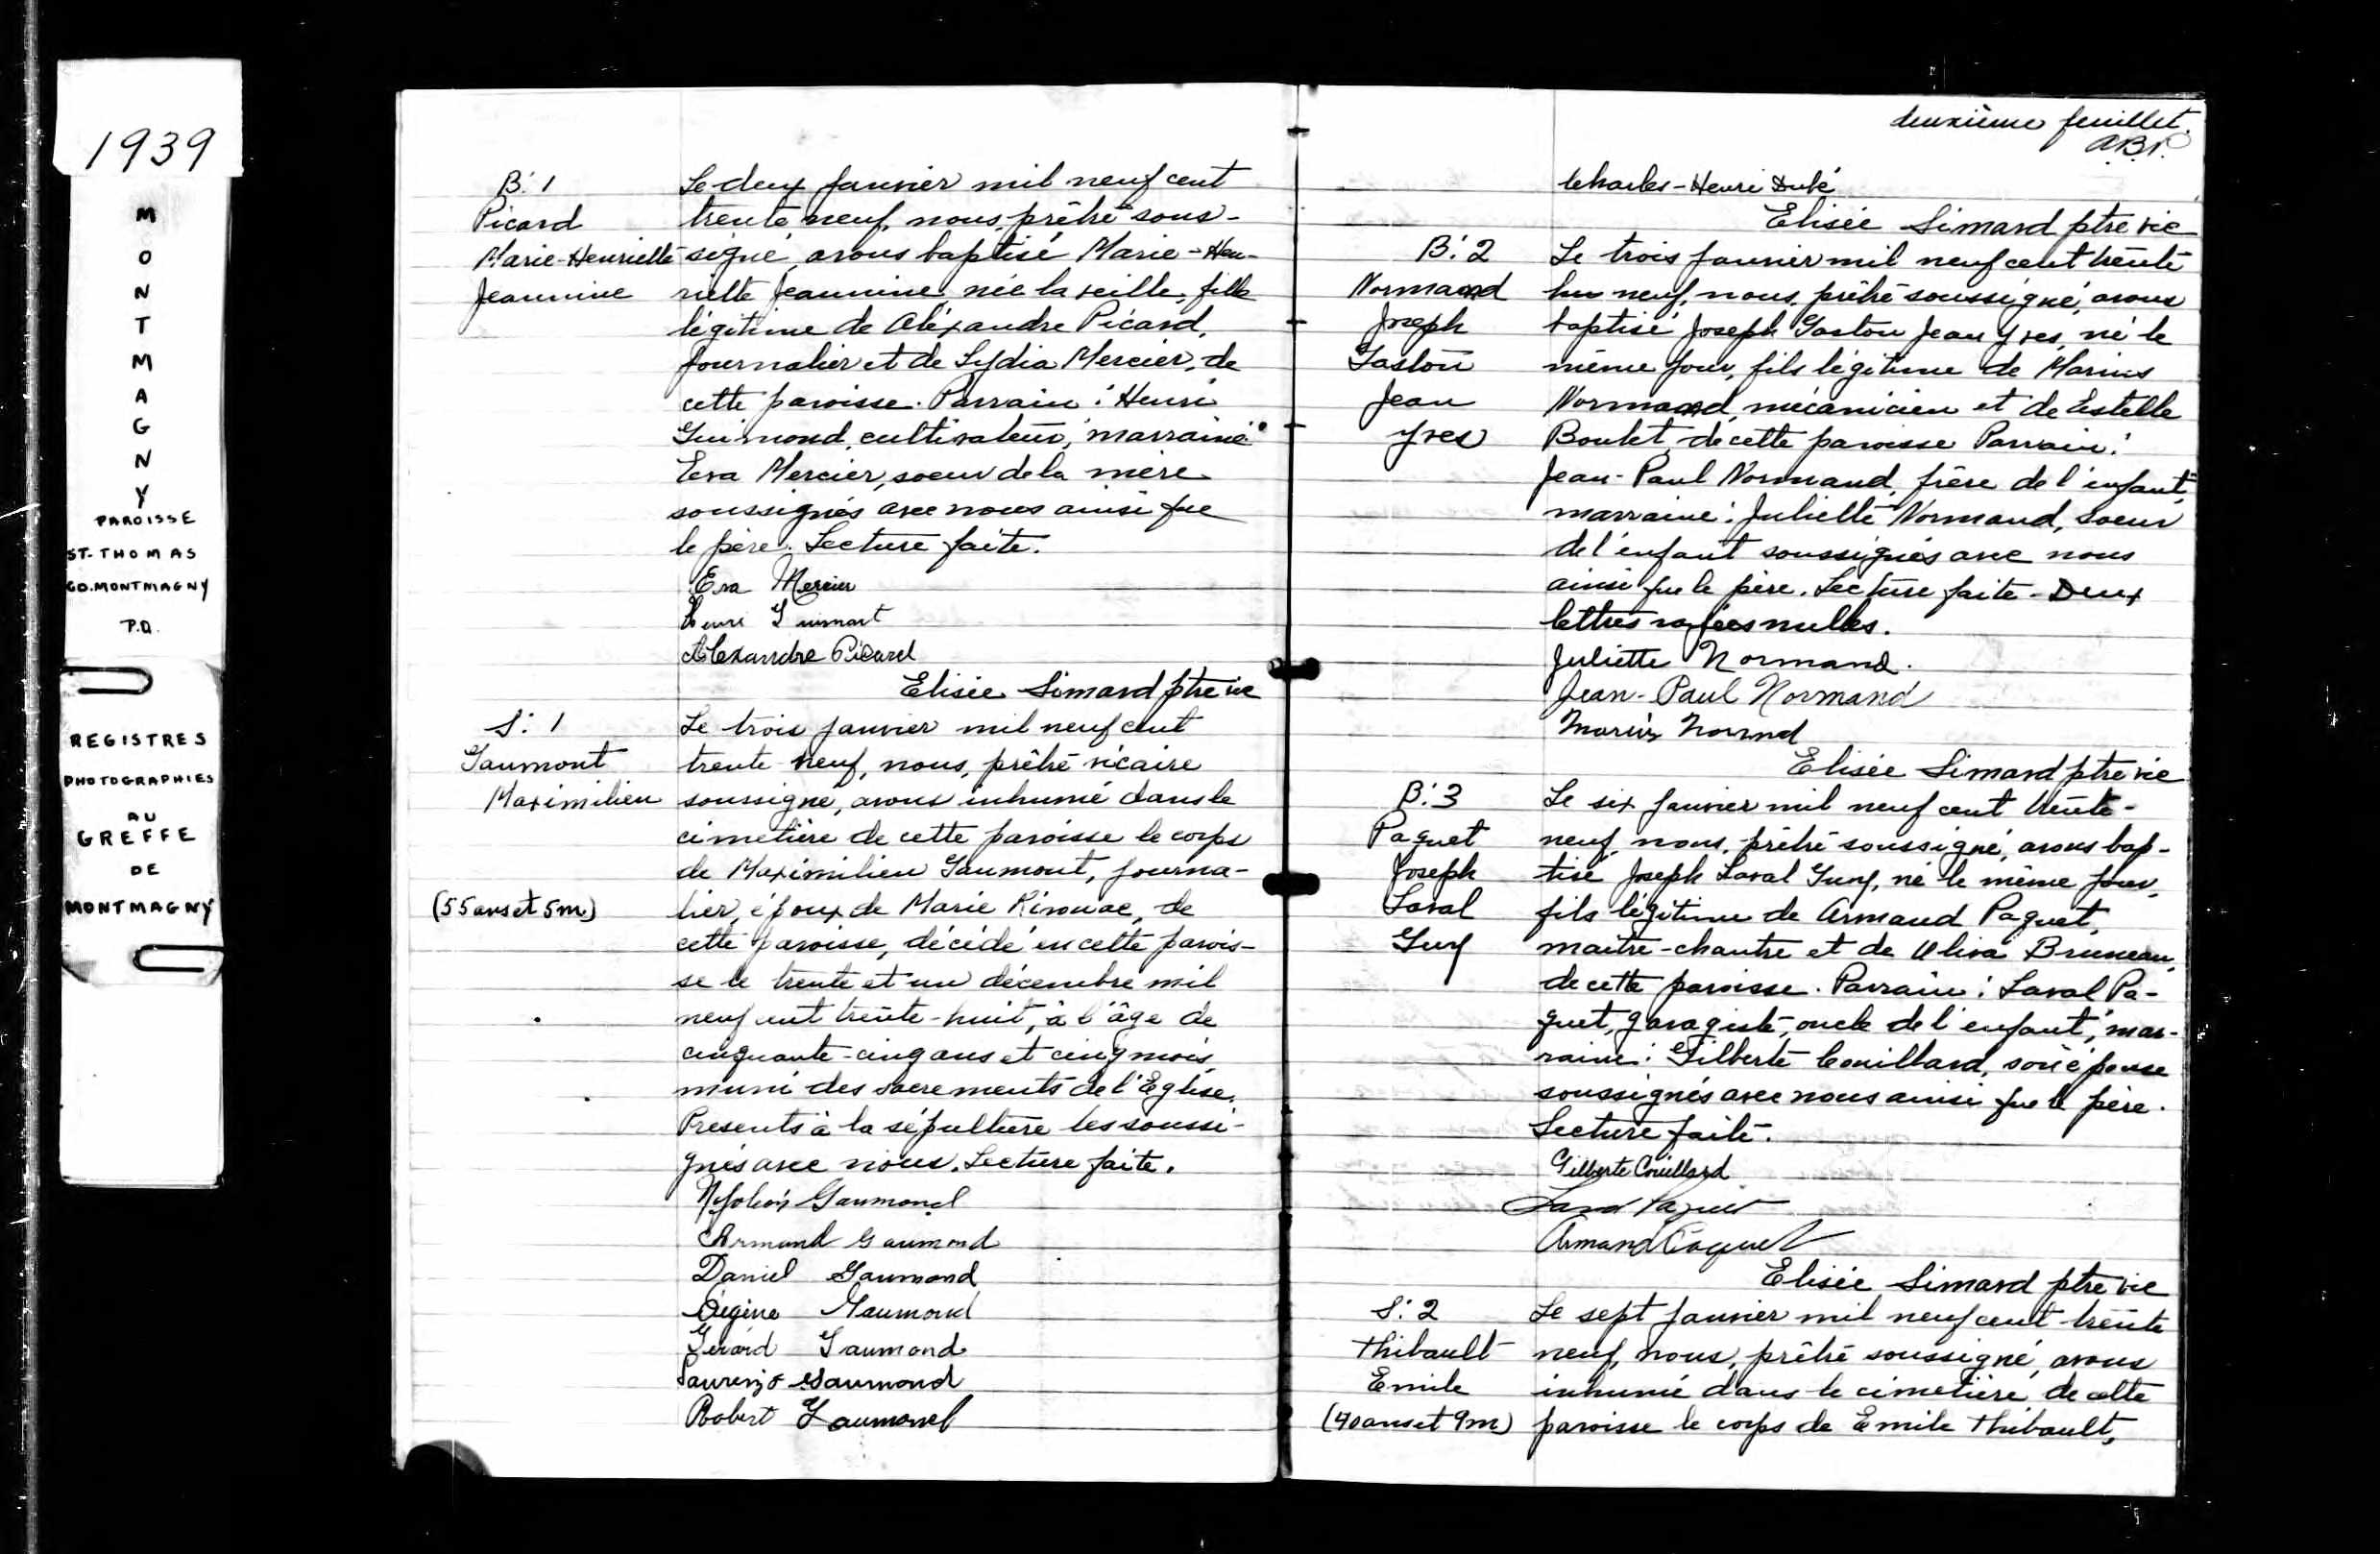 1939
MONTMAGNY
PAROISSE
ST-THOMAS
CO. MONTMAGNY
P.Q.
REGISTRES
PHOTOGRAPHIES
AU
GREFFE
DE
MONTMAGNY
B. 1
Picard
Marie-Henriette
Jeannine
Le deux janvier mil neuf cent
trente neuf, nous, prêtre sous-
signé, avons baptisé Marie-Hen-
riette Jeannine, née la veille, fille
légitime de Aléxandre Picard,
journalier et de Lydia Mercier, de
cette paroisse. Parrain: Henri
Guimond, cultivateur, marraine:
Eva Mercier, soeur de la mère
soussignés avec nous ainsi que
le père. Lecture faite.
Eva Mercier
Henri
Alexandre Picard
Elisée Simard ptre vic
S: 1
Gaumont
Maximilien
(55 ans et 5 m)
Le trois janvier mil neuf cent
trente neuf, nous, prêtre vicaire
soussigné, avons inhumé dans le
cimetière de cette paroisse le corps
de Maximilien Gaumont, journa-
lier, époux de Marie Kirouac, de
cette paroisse, décédé en cette parois-
se le trente et un décembre mil
neuf cent trente-huit, à l'âge de
cinquante-cinq ans et cinq mois
muni des sacrements de l'Eglise.
Presents à la sépulture les soussi-
gnés avec nous. Lecture faite.
Gaumond
Armand Gaumond
Daniel Gaumond
Gaumond
Gérard Gaumond
Laurenzo Gaumond
Robert Gaumond
deuxième feuillet.
A.B.P.
Charles-Henri Dubé
Elisée Simard ptre vic
B: 2
Normand
Joseph
Gaston
Jean
Yves
Le trois janvier mil neuf cent trente
neuf, nous, prêtre soussigné, avons
baptisé Joseph Gaston Jean Yves, né le
même jour, fils légitime de Marius
Normand, mécanicien et de Estelle
Boulet, de cette paroisse Parrain:
Jean-Paul Normand, frère de l'enfant,
marraine: Juliette Normand, soeur
de l'enfant soussignés avec nous
ainsi que le père. Lecture faite. Deux
lettres rayées nulles.
Juliette Normand.
Jean-Paul Normand
Marius
Elisée Simard ptre vic
B: 3
Paquet
Joseph
Laval
Guy
Le six janvier mil neuf cent trente-
neuf, nous, prêtre soussigné, avons bap-
tisé Joseph Laval Guy, né le même jour,
fils légitime de Armand Paquet,
maître-chantre et de Oliva Bruneau,
de cette paroisse. Parrain: Laval Pa-
quet, garagiste, oncle de l'enfant, mar-
raine: Gilberte Couillard, son épouse
soussignés avec nous ainsi que le père.
Lecture faite.
Gilberte Couillard
Laval Paquet
Armand Paquet
Elisée Simard ptre vic
S: 2
Thibault
Emile
(40 ans et 9 m)
Le sept janvier mil neuf cent trente
neuf, nous, prêtre soussigné, avons
inhumé dans le cimetière de cette
paroisse le corps de Emile Thibault,